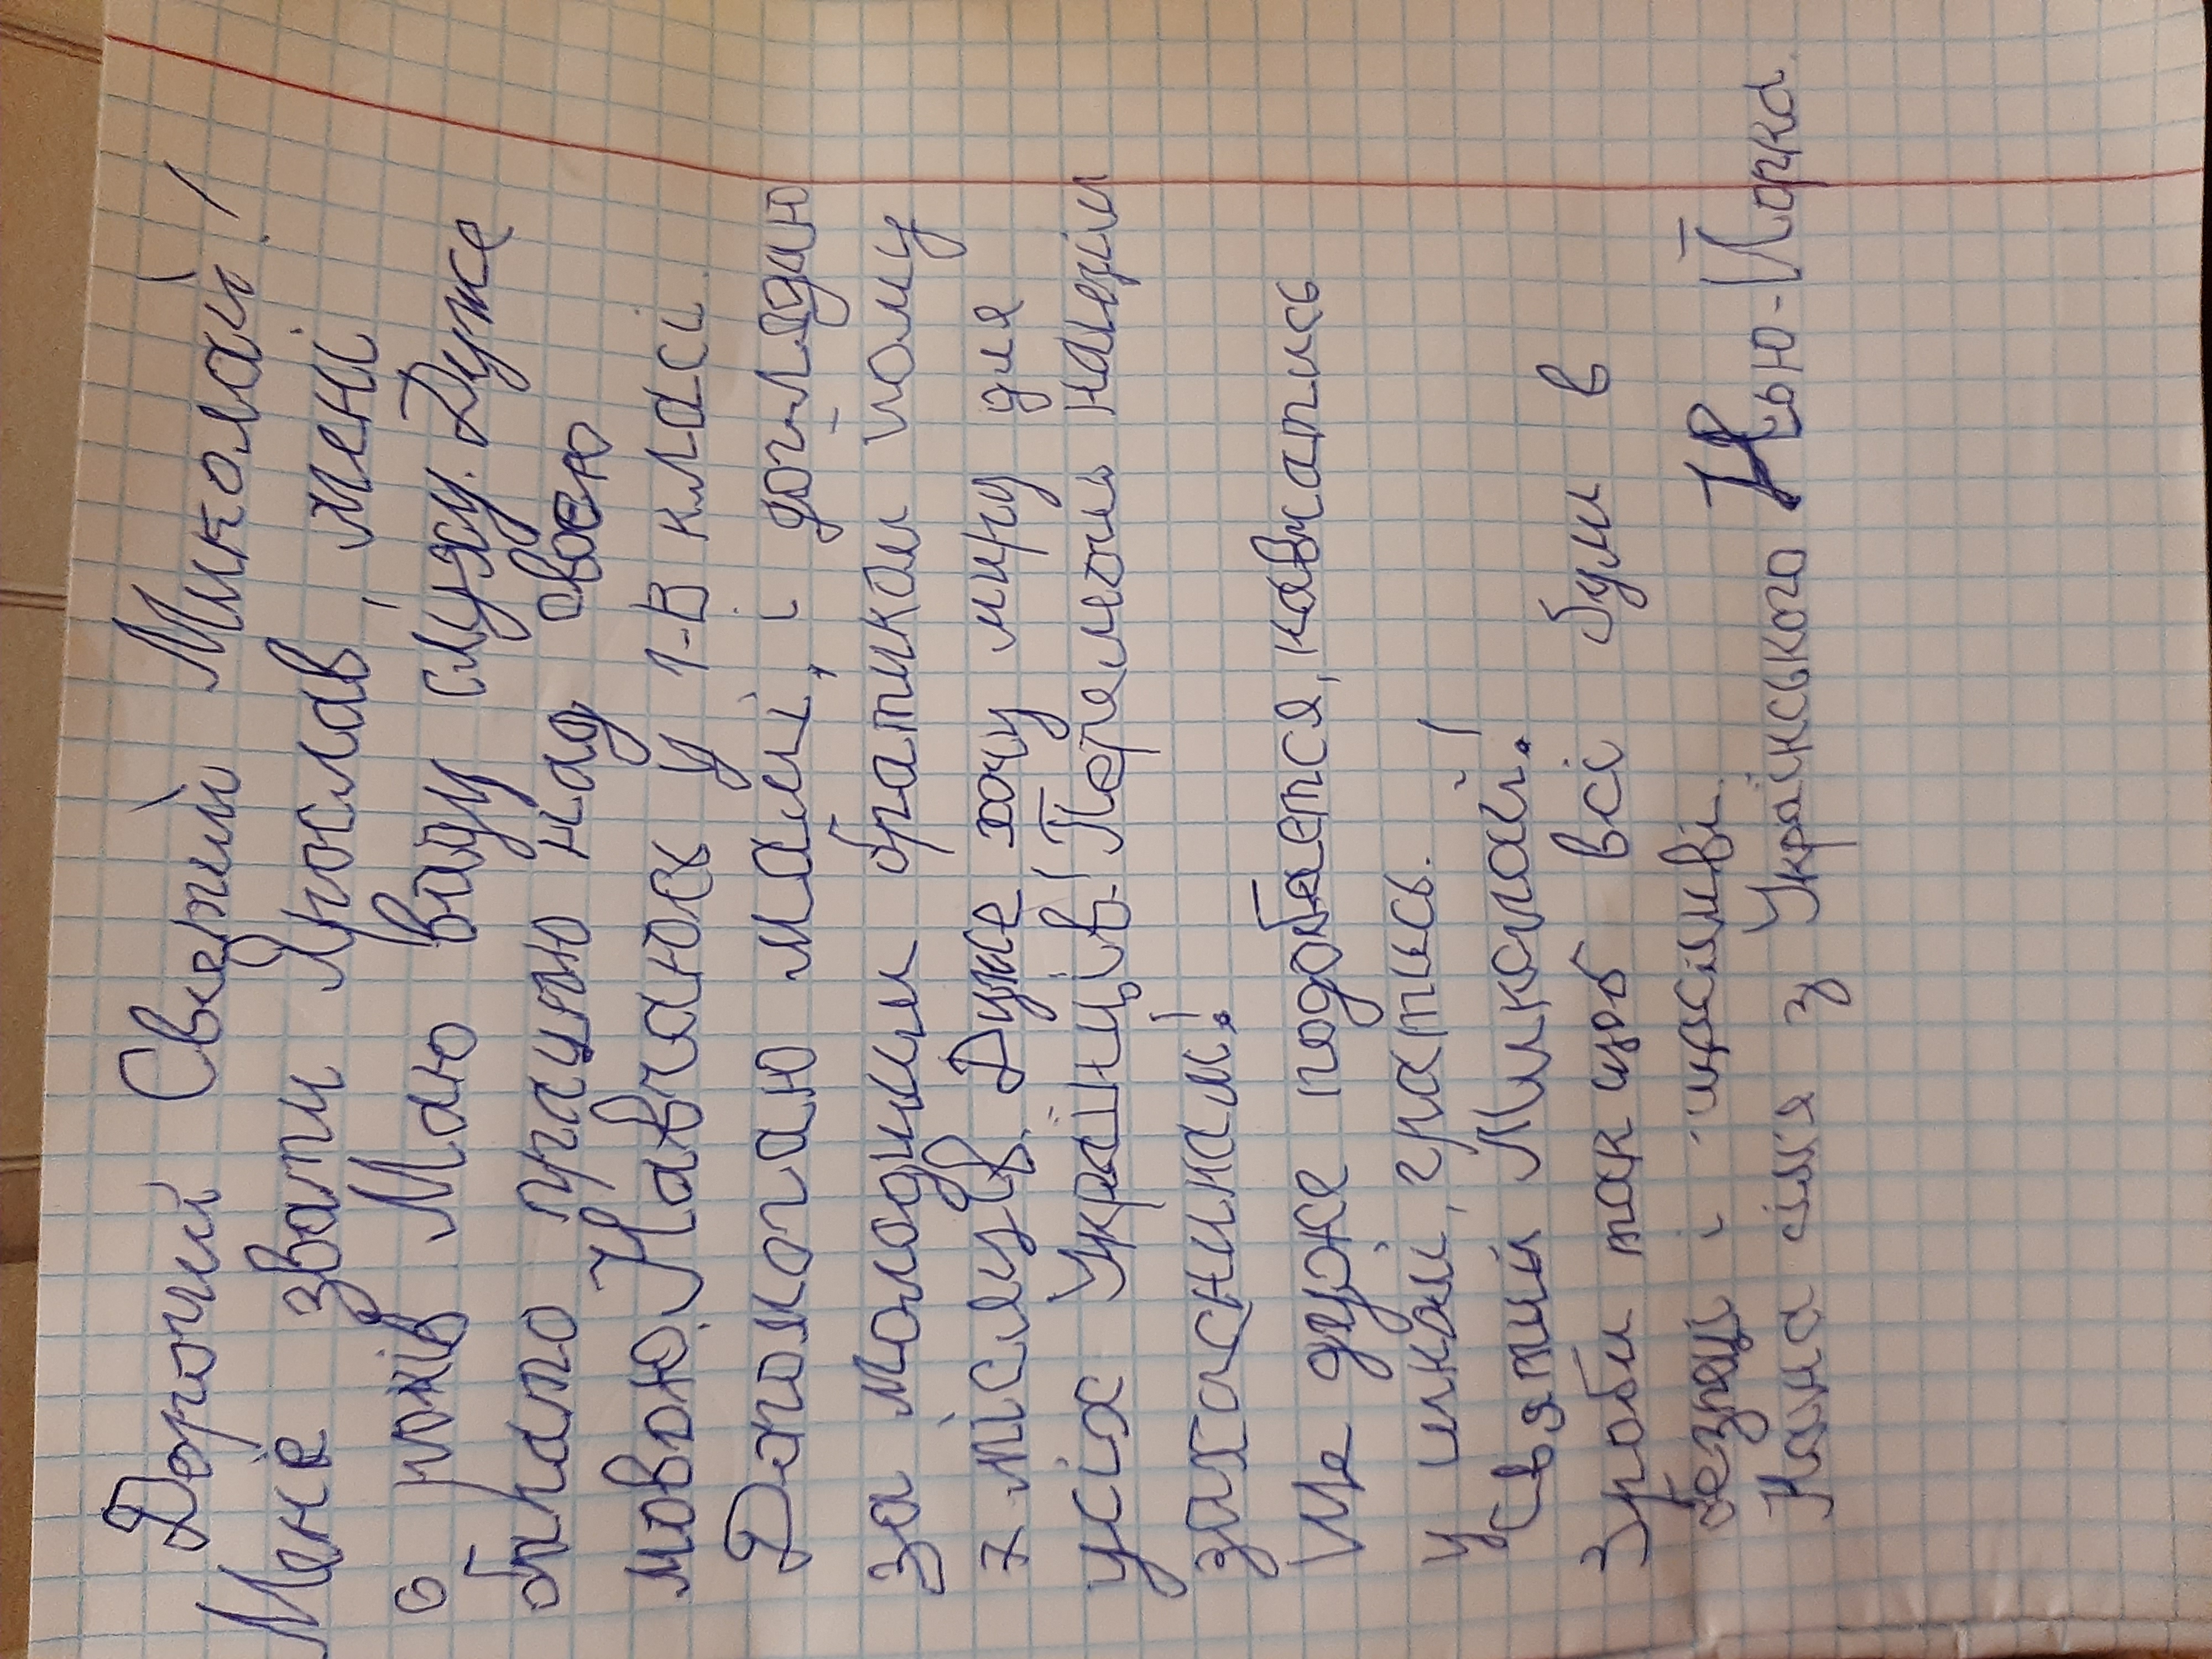 Дорогий Святий Миколай!
Мене звати Ярослав, мені
6 років Маю ваду слуху. Дуже
багато працюю над своєю
мовою. Навчаюсь у 1-В класі.
Допомогаю мамі, і доглядаю
за молодшим братиком йому
7 місяців. Дуже хочу миру для
усіх Українців! Перемоги нашим
захасникам!
Ще дуже подобається, навчатись
у школі, гратись.
Святий Миколай!
Зроби так щоб всі були в
безпеці і щасливі.
Наша сім'я з Українського Нью-Йорка.